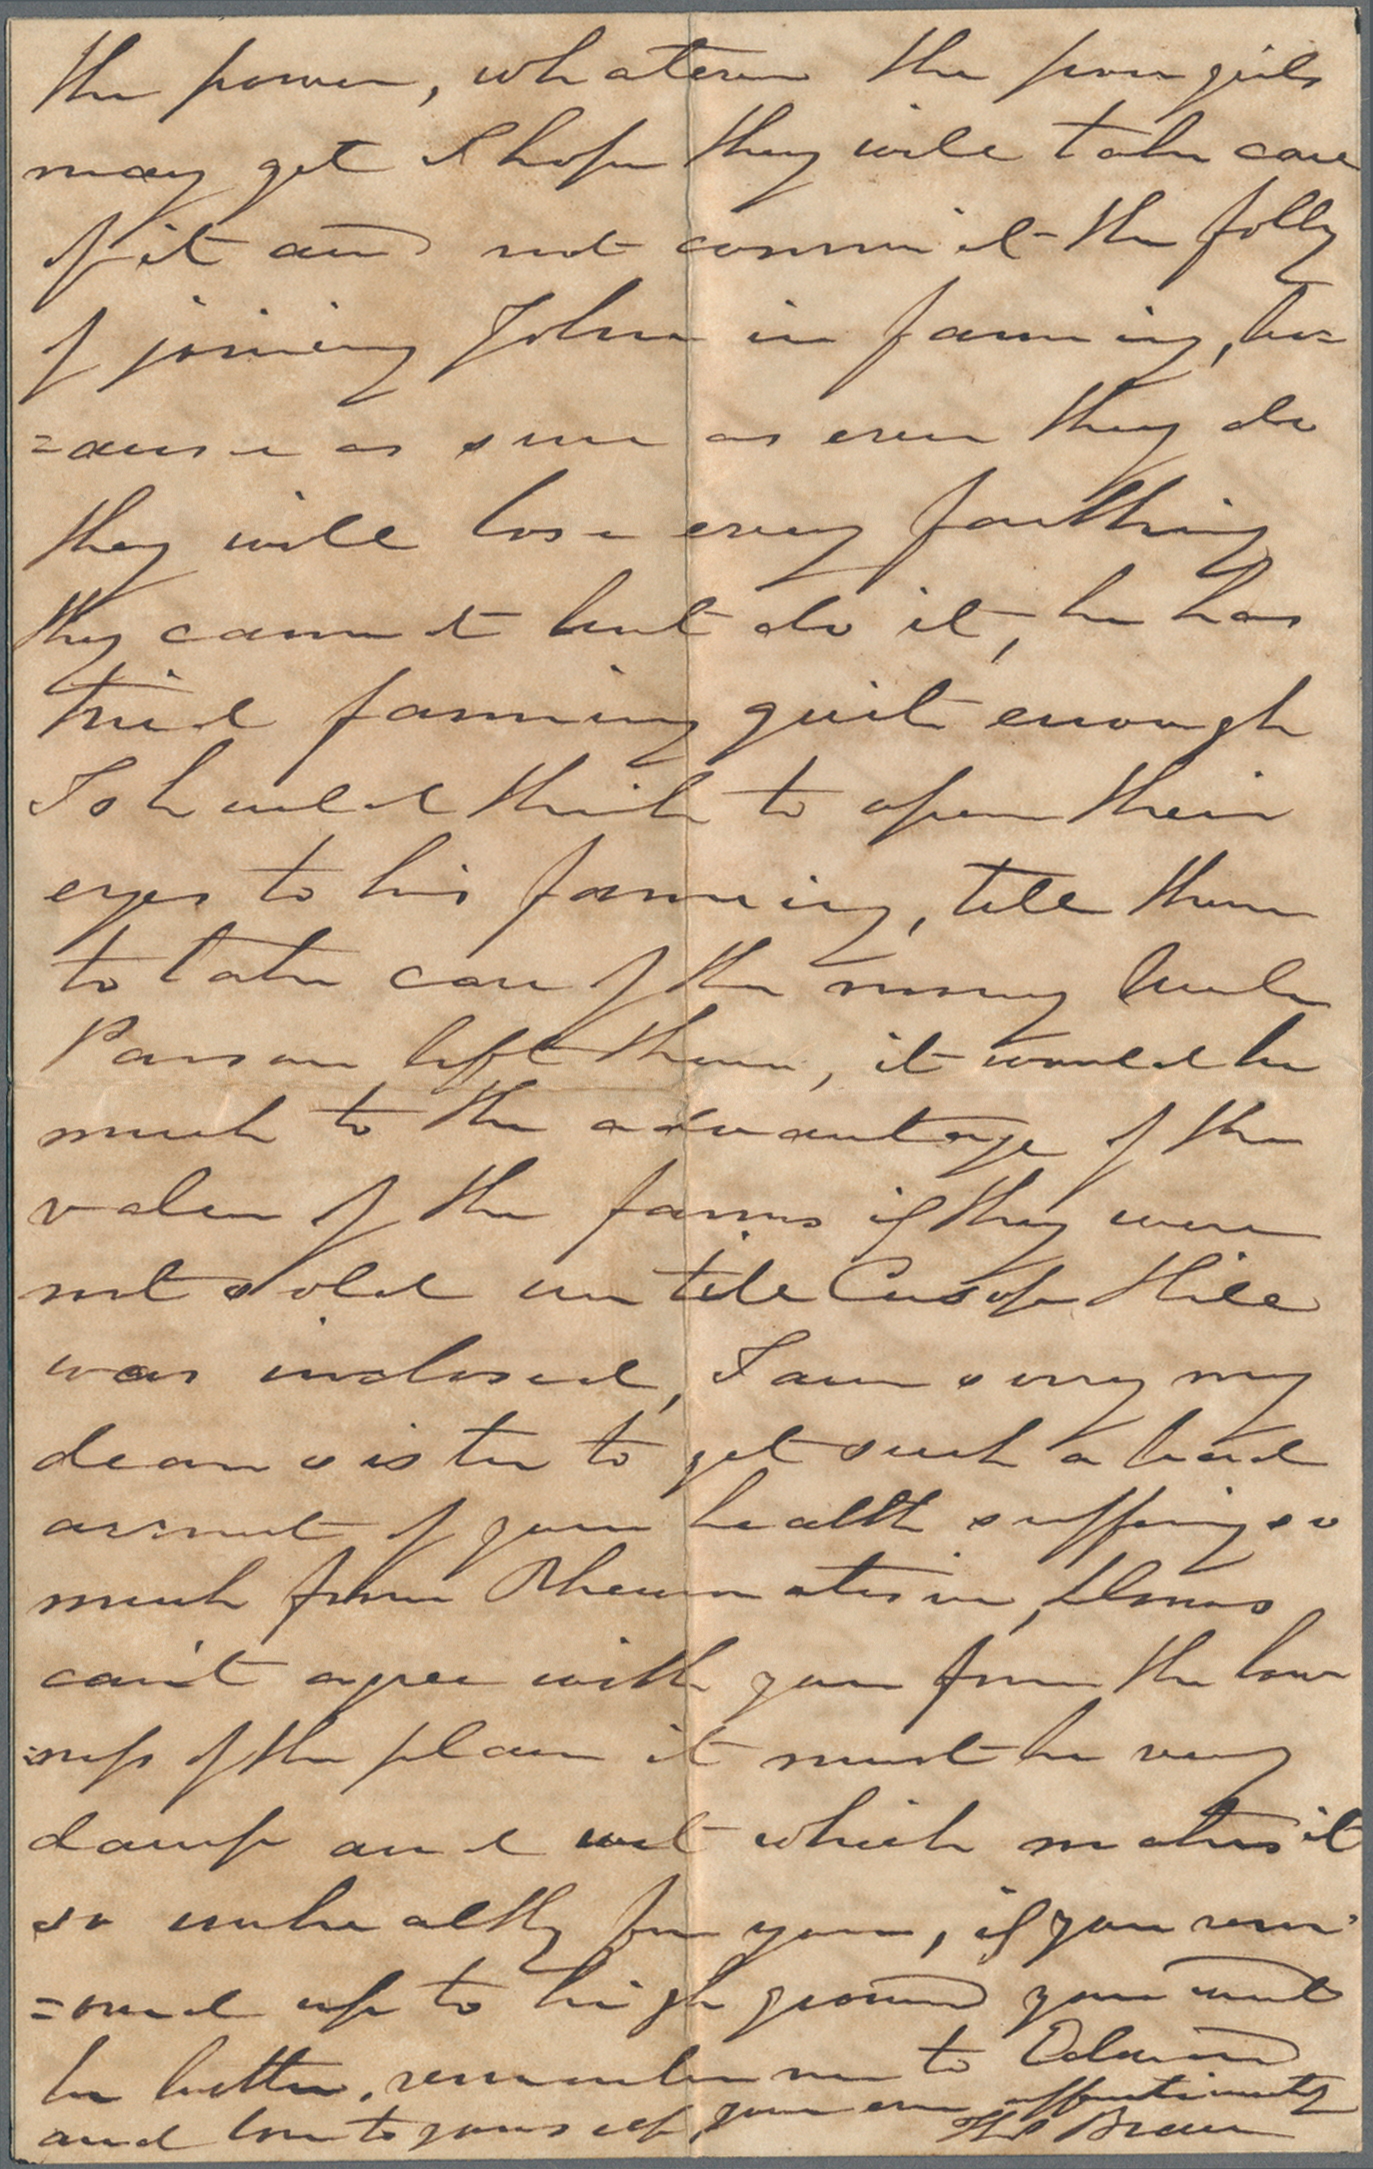 the power, whatever the poor girls
may get I hope they will take care
of it and not commit the folly
of joining John in farming, be=
=cause as sure as ever they do
they will lose every farthing
they cannot but do it, he has
tried farming quite enough
I should think to open their
eyes to his farming, tell them
to take care of the money Uncle
Parson left them, it would be
much to the advantage of the
value of the farms if they were
not sold untill Cusop Hill
was inclosed, I am sorry my
dear sister to get such a bad
account of your health suffering so
much from Rheumatism,
can't agree with you from the low
=ness of the place it must be very
damp and wet which makes it
so unhealthy for you, if you rem=
=oved up to high ground you would
be better, remember me to Edward
and love to yourself, your ever affectionately
Thos Brown